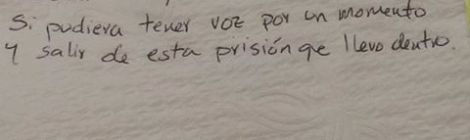 Si pudiera tener voz por un momento
y salir de esta prisión qe llevo dentro.